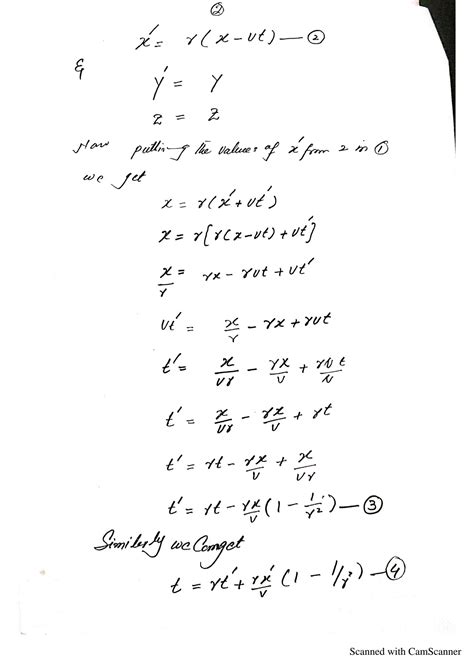 ②
x′ = γ(x − vt) — ②
& y′ = y
z = z
Now putting the values of x′ from 2 in ①
we get
x = γ(x′ + vt′)
x = γ[γ(x − vt) + vt′]
x/γ = γx − γvt + vt′
vt′ = x/γ − γx + γvt
t′ = x/vγ − γx/v + γvt/v
t′ = x/vγ − γx/v + γt
t′ = γt − γx/v + x/vγ
t′ = γt − γx/v (1 − 1/γ²) — ③
Similerly we Comget
t = γt′ + γx′/v (1 − 1/γ²) — ④
Scanned with CamScanner